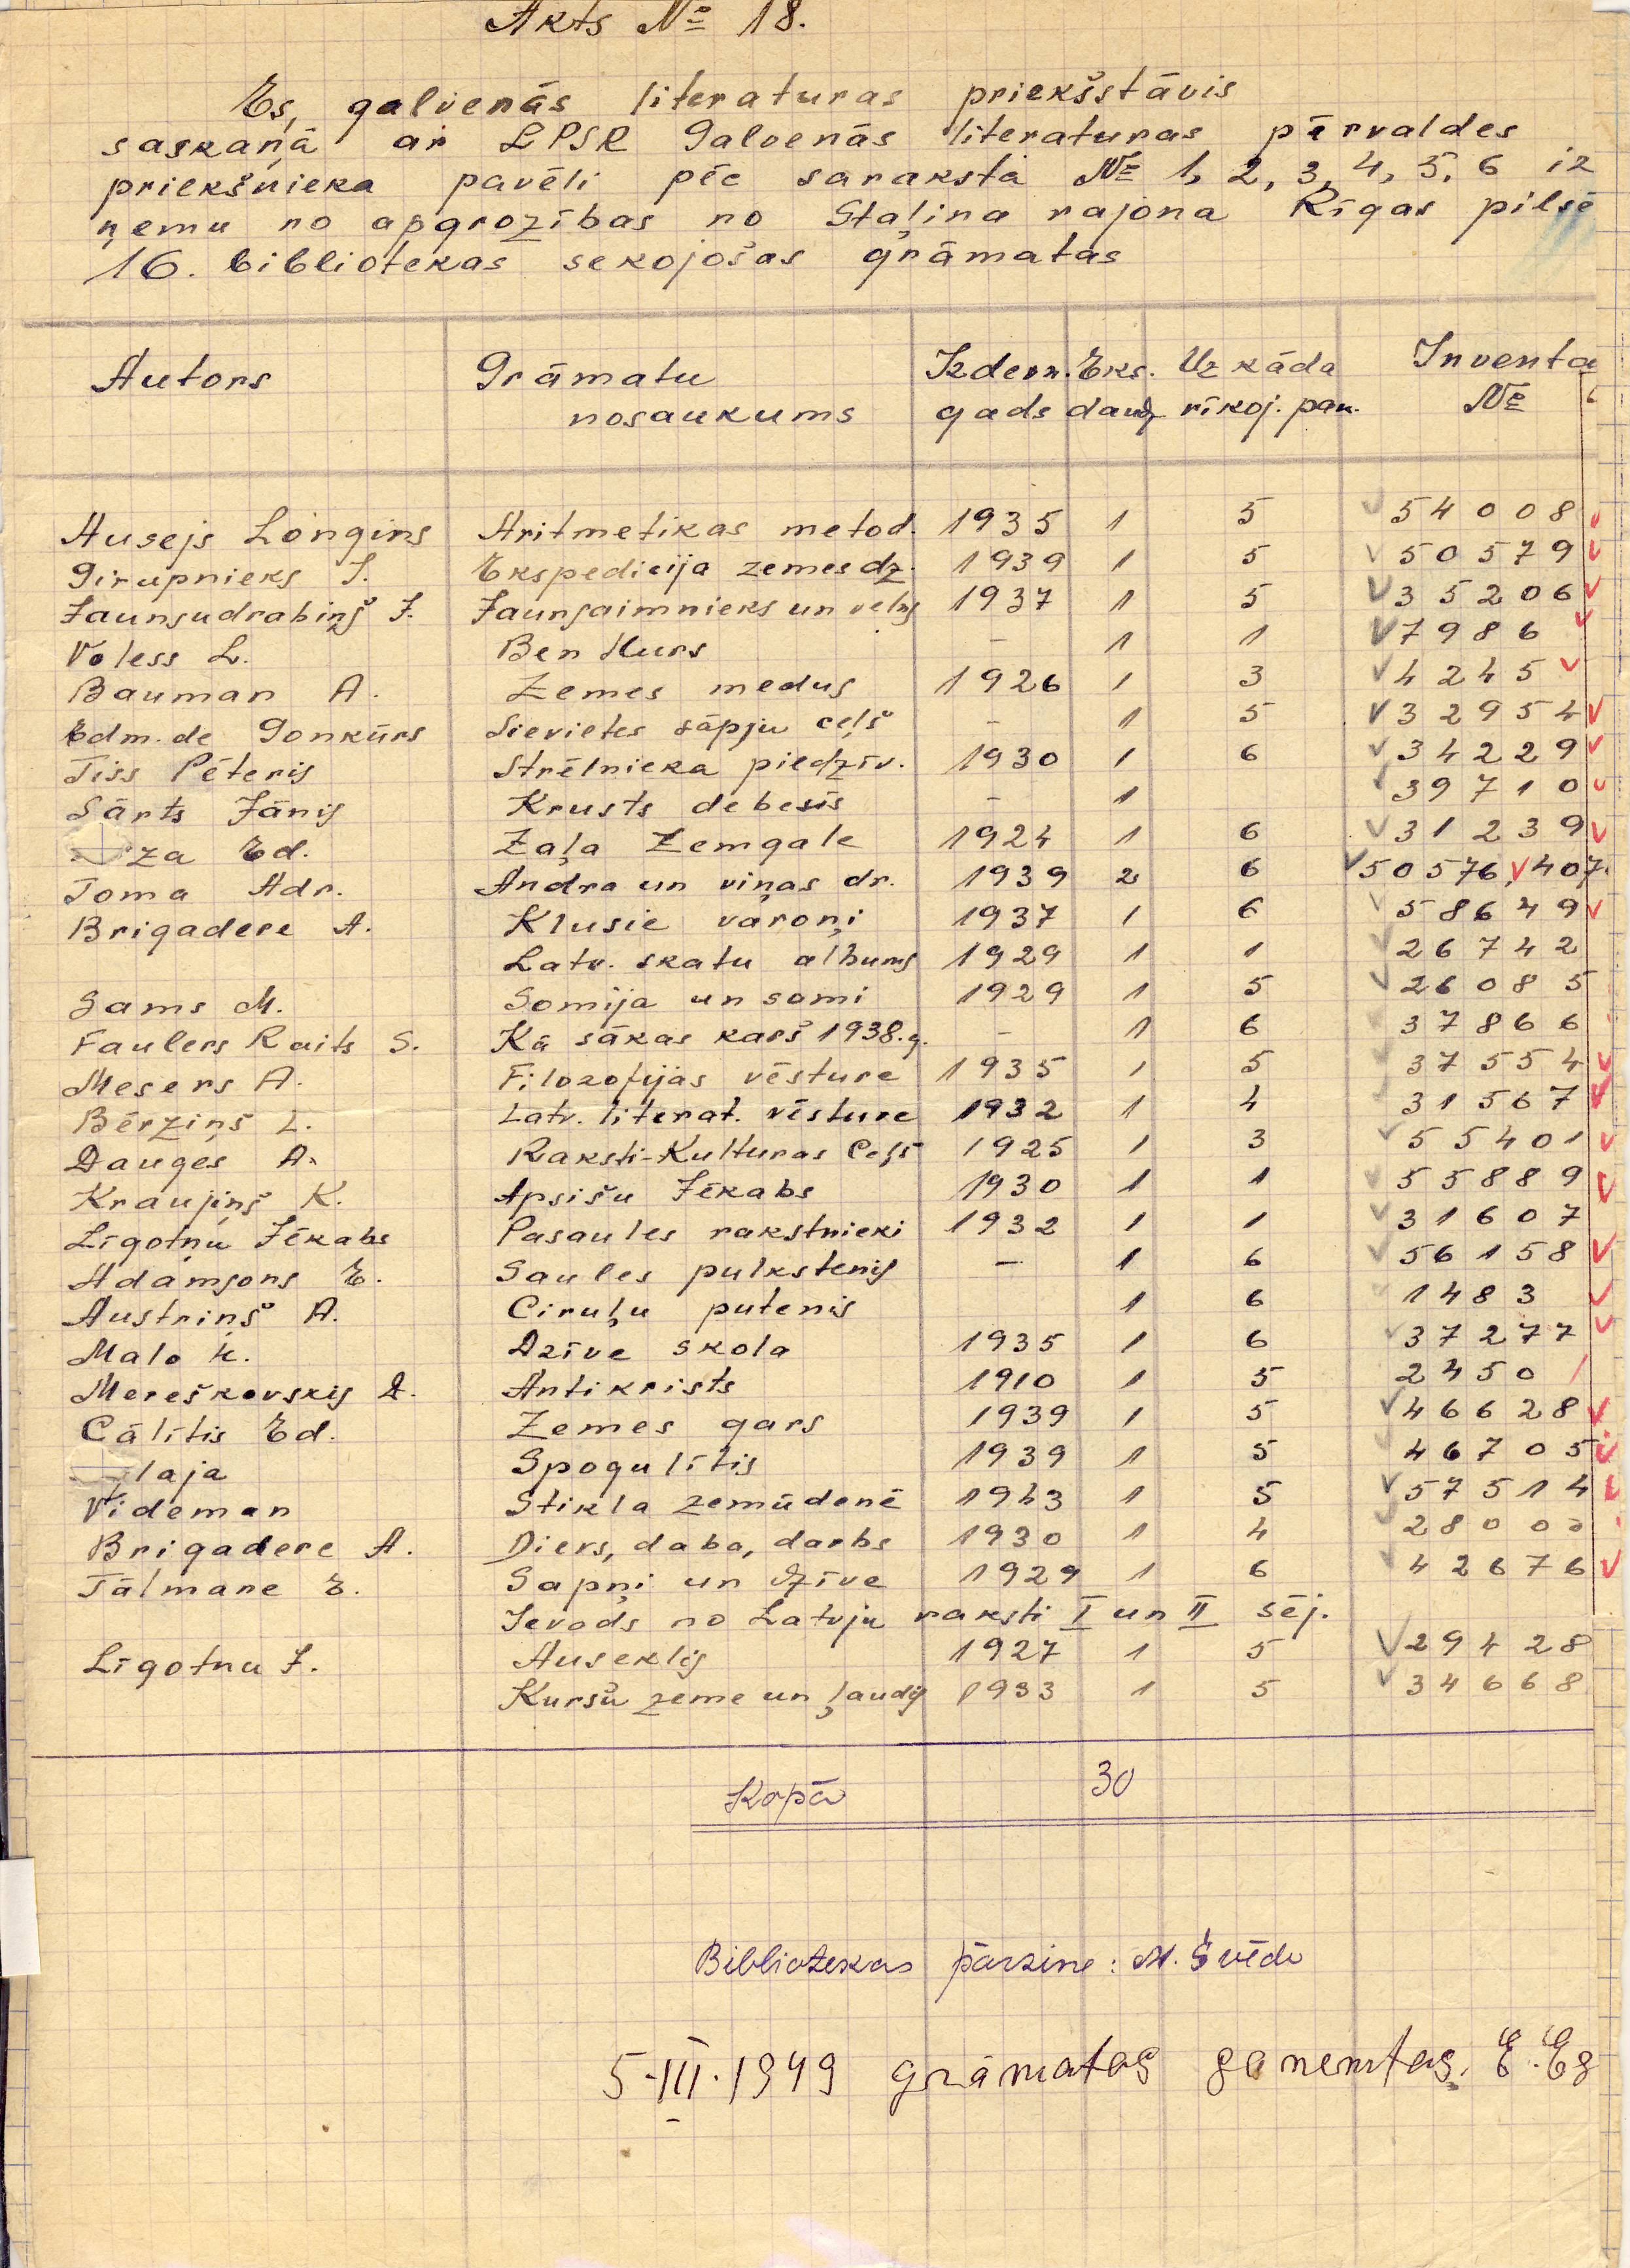 Akts № 18.
Es, galvenās literaturas priekšstāvis
saskaņā ar LPSR Galvenās literaturas pārvaldes
priekšnieka pavēli pēc saraksta № 1, 2, 3, 4, 5, 6 iz
ņemu no apgrozības no Staļina rajona Rīgas pilsē
16. bibliotekas sekojošas grāmatas
Autors Grāmatu Izdevn. Eks. Uz kāda Inventa
nosaukums gads daudz rīkoj. pam. №
Ausejs Longins Aritmetikas metod. 1935 1 5 54008
Girupnieks J. Ekspedicija zemesdz. 1939 1 5 50579
Jaunsudrabiņš J. Jaunsaimnieks un velns 1937 1 5 35206
Voless L. Ben Hurs – 1 1 7986
Bauman A. Zemes medus 1926 1 3 4245
Edm. de Gonkūrs Sievietes sāpju ceļš – 1 5 32954
Tiss Pēteris Strēlnieka piedzīv. 1930 1 6 34229
Sārts Jānis Krusts debesīs – 1 39710
za Ed. Zaļa Zemgale 1924 1 6 31239
Toma Adr. Andra un viņas dr. 1939 2 6 50576, 407
Brigadere A. Klusie varoņi 1937 1 6 58649
Latv. skatu albums 1929 1 1 26742
Sams M. Somija un somi 1929 1 5 26085
Faulers Raits S. Kā sākas karš 1938.g. – 1 6 37866
Mesers A. Filozofijas vēsture 1935 1 5 37554
Bērziņš L. Latv. literat. vēsture 1932 1 4 31567
Dauges A. Raksti-Kulturas Ceļš 1925 1 3 55401
Kraujiņš K. Apsišu Jēkabs 1930 1 1 55889
Līgotņu Jēkabs Pasaules rakstnieki 1932 1 1 31607
Adamsons E. Saules pulkstenis – 1 6 56158
Austriņš A. Ciruļu putenis 1 6 1483
Malo H. Dzīve skola 1935 1 6 37277
Mereškovskis D. Antikrists 1910 1 5 2450
Cālītis Ed. Zemes gars 1939 1 5 46628
laja Spogulītis 1939 1 5 46705
Videman Stikla zemūdenē 1943 1 5 57514
Brigadere A. Dievs, daba, darbs 1930 1 4 28000
Tālmane E. Sapņi un dzīve 1929 1 6 42676
Ievads no Latvju raksti I un II sēj.
Līgotnu J. Auseklis 1927 1 5 29428
Kuršu zeme un ļaudis 1933 1 5 34668
Kopā 30
Bibliotekas pārzine: M. Švēde
5.III.1949 grāmatas saņemtas. E. Eg